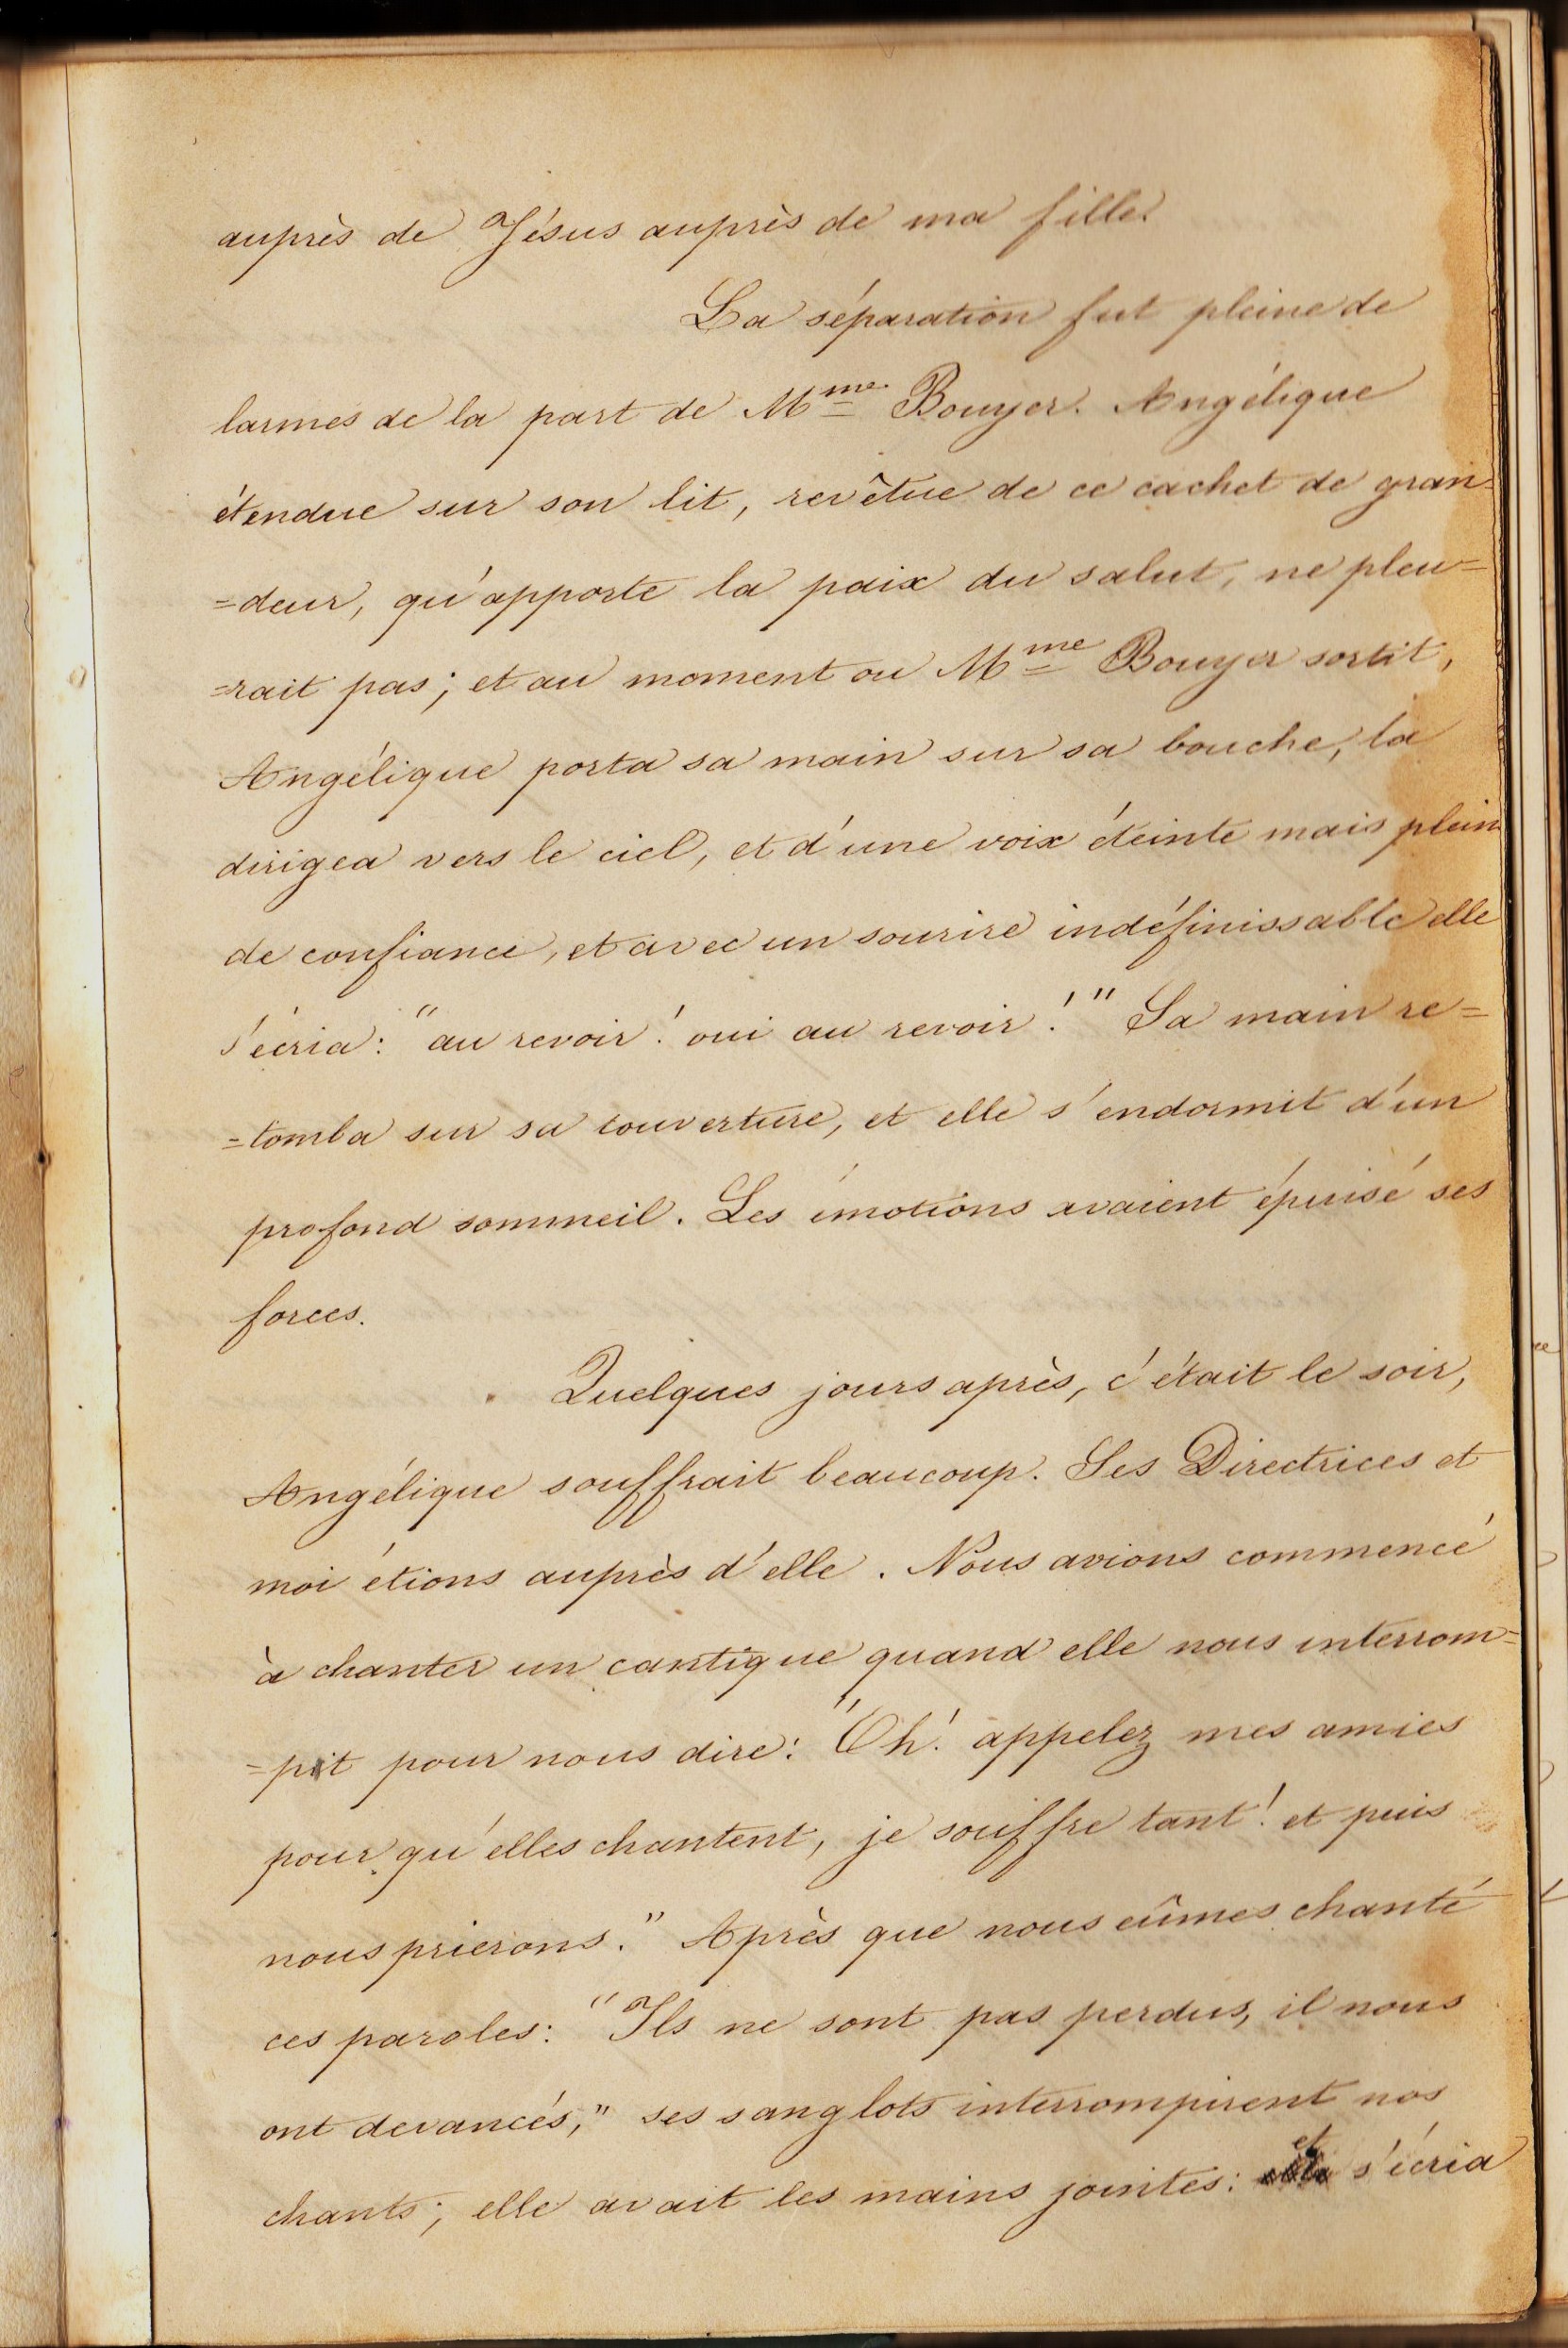 auprès de Jésus auprès de ma fille.
La séparation fut pleine de
larmes de la part de Mme Bouyer. Angélique
étendue sur son lit, revêtue de ce cachet de gran=
=deur, qu'apporte la paix du salut, ne pleu=
=rait pas; et au moment ou Mme Bouyer sortit,
Angélique porta sa main sur sa bouche, la
dirigea vers le ciel, et d'une voix éteinte mais plein
de confiance, et avec un sourire indéfinissable elle
s'écria: "au revoir! oui au revoir!" Sa main re=
=tomba sur sa couverture, et elle s'endormit d'un
profond sommeil. Les émotions avaient épuisé ses
forces.
Quelques jours après, c'était le soir,
Angélique souffrait beaucoup. Ses Directrices et
moi étions auprès d'elle. Nous avions commencé
à chanter un cantique quand elle nous interrom=
=pit pour nous dire: "Oh! appelez mes amies
pour qu'elles chantent, je souffre tant! et puis
nous prierons." Après que nous eûmes chanté
ces paroles: "Ils ne sont pas perdus, il nous
ont devancés," ses sanglots interrompirent nos
chants; elle avait les mains jointes: et s'écria